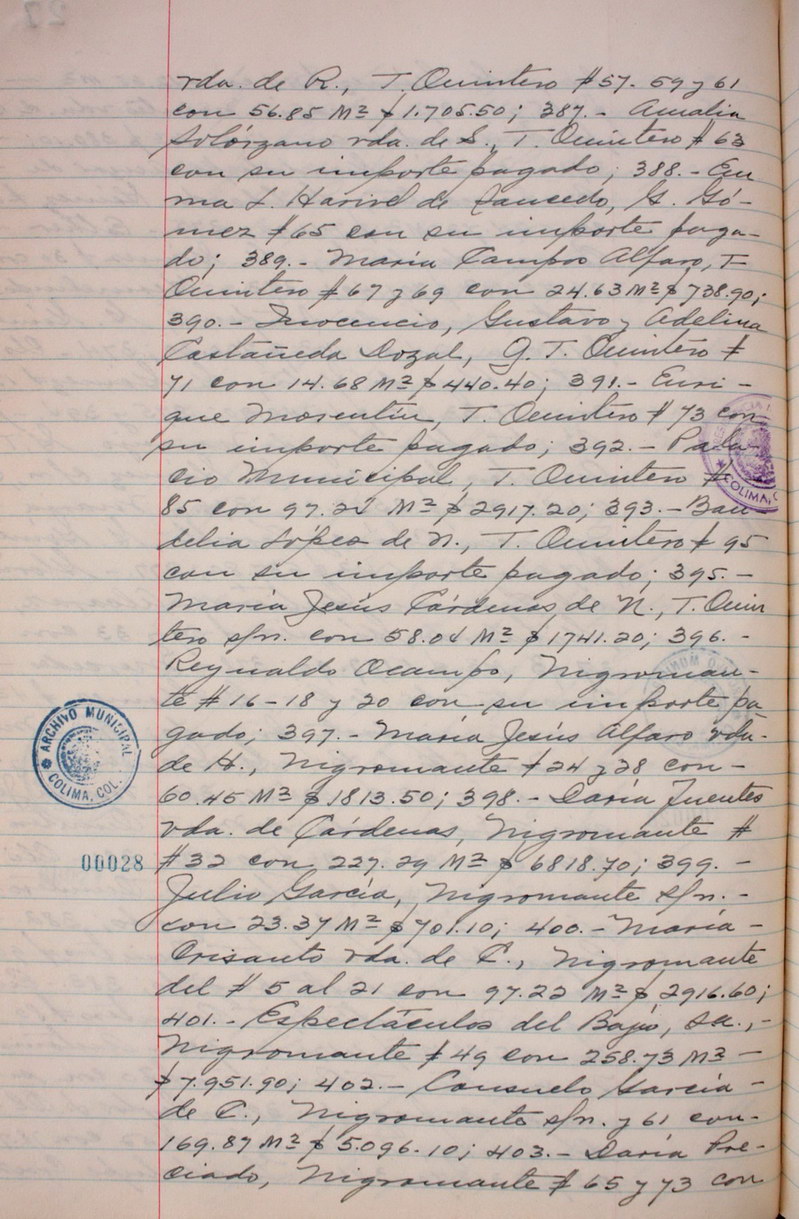 vda. de R., T. Quintero #57-59 y 61
con 56.85 M² $1.705.50; 387.- Amalia
Solórzano vda. de S., T. Quintero # 63
con su importe pagado; 388.- Em
ma L. Harivel de Saucedo, G. Gó-
mez #65 con su importe paga-
do; 389.- María Campos Alfaro, T-
Quintero #67 y 69 con 24.63 M² $738.90;
390.- Inocencio, Gustavo y Adelina
Castañeda Dozal, G. T. Quintero #
71 con 14.68 M² $440.40; 391.- Enri-
que Mosentín, T. Quintero #73 con
su importe pagado; 392.- Pala-
cio Municipal, T. Quintero #
85 con 97.24 M² $2917.20; 393.- Bau-
delia López de N., T. Quintero # 95
con su importe pagado; 395.-
María Jesús Cárdenas de N., T. Quin
tero s/n. con 58.04 M² $1741.20; 396.-
Reynaldo Ocampo, Nigroman-
te #16-18 y 20 con su importe pa
gado; 397.- María Jesús Alfaro vda.
de H., Nigromante #24 y 28 con-
60.45 M² $1813.50; 398.- Daría Fuentes
vda. de Cárdenas, Nigromante #
#32 con 227.29 M² $6818.70; 399.-
Julio García, Nigromante s/n.-
con 23.37 M² $701.10; 400.- María-
Crisanto vda. de C., Nigromante
del # 5 al 21 con 97.22 M² $2916.60;
401.- Espectáculos del Bajío, sa.,-
Nigromante #49 con 258.73 M² -
$7.951.90; 402.- Consuelo García-
de C., Nigromante s/n. y 61 con-
169.87 M² $5.096.10; 403.- Daría Pre-
ciado, Nigromante # 65 y 73 con
ARCHIVO MUNICIPAL
COLIMA, COL.
00028
COLIMA, C